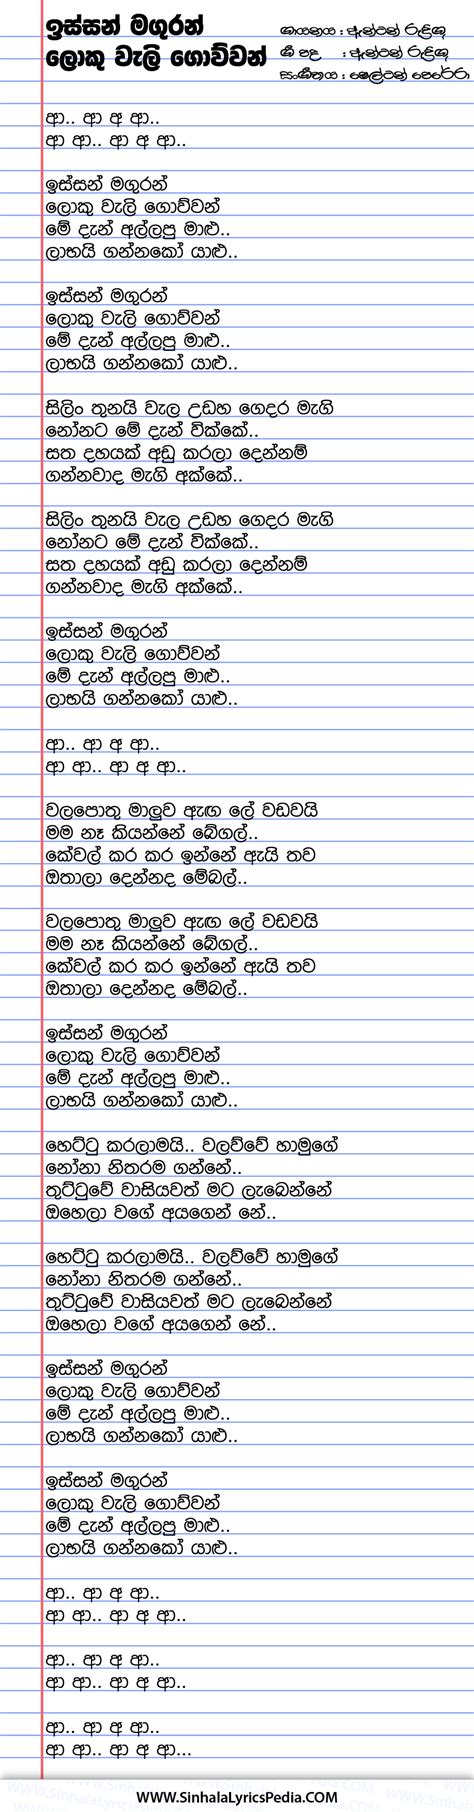 ඉස්සන් මගුරන්
ලොකු වැලි ගොව්වන්
ගායනය : ඇන්ටන් රුද්‍රිගු
ගී පද : ඇන්ටන් රුද්‍රිගු
සංගීතය : ෂෙල්ටන් පෙරේරා
ආ.. ආ අ ආ..
ආ ආ.. ආ අ ආ..
ඉස්සන් මගුරන්
ලොකු වැලි ගොව්වන්
මේ දැන් අල්ලපු මාළු..
ලාභයි ගන්නකෝ යාළු..
ඉස්සන් මගුරන්
ලොකු වැලි ගොව්වන්
මේ දැන් අල්ලපු මාළු..
ලාභයි ගන්නකෝ යාළු..
සිලිං තුනයි වැල උඩහ ගෙදර මැගි
නෝනට මේ දැන් වික්කේ..
සත දහයක් අඩු කරලා දෙන්නම්
ගන්නවාද මැගි අක්කේ..
සිලිං තුනයි වැල උඩහ ගෙදර මැගි
නෝනට මේ දැන් වික්කේ..
සත දහයක් අඩු කරලා දෙන්නම්
ගන්නවාද මැගි අක්කේ..
ඉස්සන් මගුරන්
ලොකු වැලි ගොව්වන්
මේ දැන් අල්ලපු මාළු..
ලාභයි ගන්නකෝ යාළු..
ආ.. ආ අ ආ..
ආ ආ.. ආ අ ආ..
වලපොතු මාලුව ඇඟ ලේ වඩවයි
මම නෑ කියන්නේ බේගල්..
කේවල් කර කර ඉන්නේ ඇයි තව
ඔතාලා දෙන්නද මේබල්..
වලපොතු මාලුව ඇඟ ලේ වඩවයි
මම නෑ කියන්නේ බේගල්..
කේවල් කර කර ඉන්නේ ඇයි තව
ඔතාලා දෙන්නද මේබල්..
ඉස්සන් මගුරන්
ලොකු වැලි ගොව්වන්
මේ දැන් අල්ලපු මාළු..
ලාභයි ගන්නකෝ යාළු..
හෙට්ටු කරලාමයි.. වලව්වේ හාමුගේ
නෝනා නිතරම ගන්නේ..
තුට්ටුවේ වාසියවත් මට ලැබෙන්නේ
ඔහෙලා වගේ අයගෙන් නේ..
හෙට්ටු කරලාමයි.. වලව්වේ හාමුගේ
නෝනා නිතරම ගන්නේ..
තුට්ටුවේ වාසියවත් මට ලැබෙන්නේ
ඔහෙලා වගේ අයගෙන් නේ..
ඉස්සන් මගුරන්
ලොකු වැලි ගොව්වන්
මේ දැන් අල්ලපු මාළු..
ලාභයි ගන්නකෝ යාළු..
ඉස්සන් මගුරන්
ලොකු වැලි ගොව්වන්
මේ දැන් අල්ලපු මාළු..
ලාභයි ගන්නකෝ යාළු..
ආ.. ආ අ ආ..
ආ ආ.. ආ අ ආ..
ආ.. ආ අ ආ..
ආ ආ.. ආ අ ආ..
ආ.. ආ අ ආ..
ආ ආ.. ආ අ ආ...
WWW.SinhalaLyricsPedia.COM